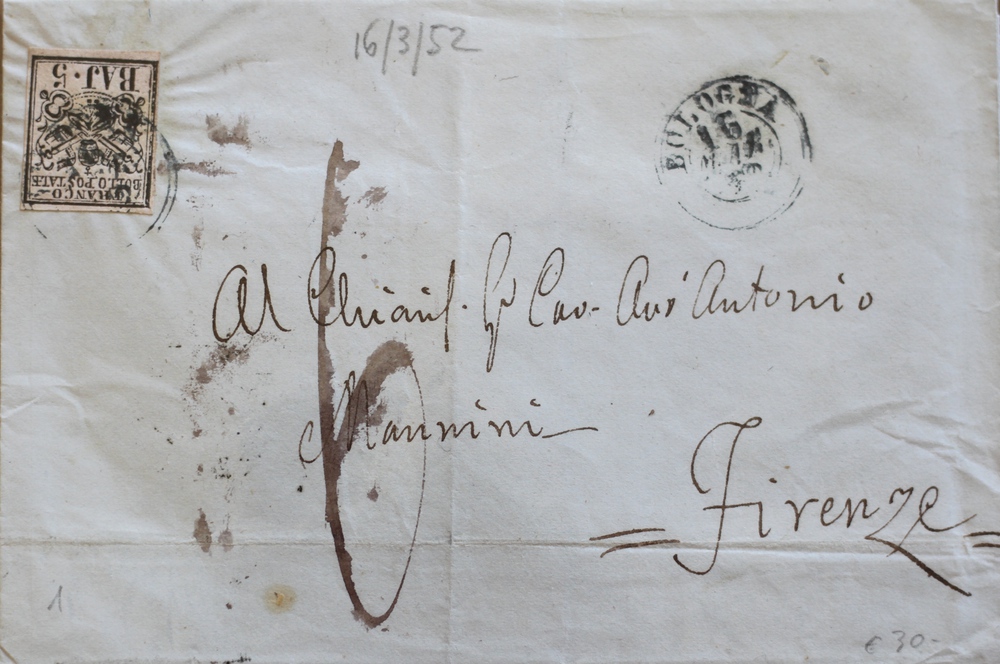 16/3/52
BAJ. 5
FRANCO
BOLLO POSTALE
BOLOGNA
6
Al Chiariss. Sigr Cav. Avv Antonio
Mannini
Firenze
1
€ 30-